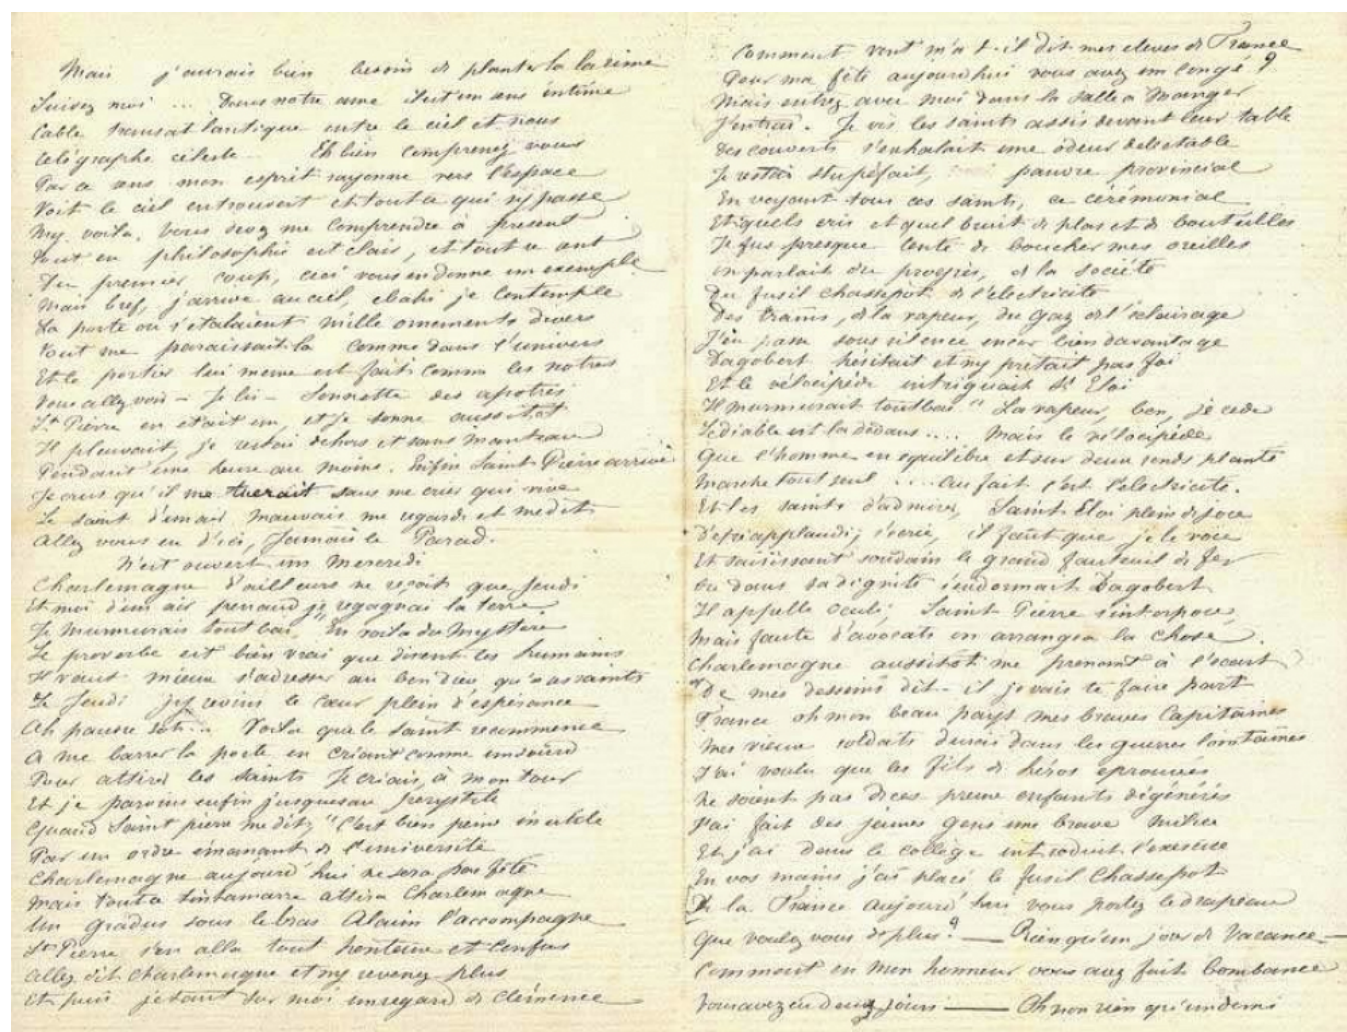 Mais j'aurais bien besoin de planter là la rime
Suivez moi ... Dans notre ame il est un sens intime
Cable transatlantique entre le ciel et nous
telégraphe céleste .. Eh bien comprenez vous
Par ce sens mon esprit rayonne vers l'espace
Voit le ciel entrouvert et tout ce qui s'y passe
M'y voila, vous devez me comprendre à présent
tout en philosophie est clair, et tout ce
Du premier coup, ceci vous en donne un exemple
Mais bref, j'arrive au ciel, ebahi je contemple
La porte ou s'étalaient mille ornements divers
tout me paraissait la comme dans l'univers
Et le portier lui meme est fait comme les notres
Vous allez voir – Je lis – Sonnette des apotres
St Pierre en etait un, et je sonne aussitot
Il pleuvait, je restai dehors et sans manteau
Pendant une heure au moins. Enfin Saint-Pierre arrive
Je crus qu'il me tuerait sans me crier qui vive
Le saint d'un air mauvais me regarde et me dit
Allez vous en d'ici, Jamais le Parad.
N'est ouvert un Mercredi
Charlemagne d'ailleurs ne reçoit que Jeudi
Et moi d'un air penaud je regagnai la terre
Je murmurais tout bas, "En voila du mystère
Le proverbe est bien vrai que disent les humains
Il vaut mieux s'adresser au bon dieu qu'a ses saints
Le Jeudi j'y revins le cœur plein d'espérance
Ah pauvre sot ... Voila que le saint recommence
A me barrer la porte en criant comme un sourd
Pour attirer les saints Je criais, à mon tour
Et je parvins enfin jusques au perystile
Quand Saint pierre me dit, "C'est bien peine inutile
Par un ordre émanant de l'université
Charlemagne aujourd'hui ne sera pas fêté
Mais tout ce tintamarre attira Charlemagne
Un gradus sous le bras Alcuin l'accompagne
St Pierre s'en alla tout honteux et confus
Allez dit Charlemagne et n'y revenez plus
Et puis jetant sur moi un regard de clémence
Comment vont m'a t-il dit mes eleves de France
Pour ma fête aujourd'hui vous avez un congé ?
Mais entrez avec moi dans la salle a manger
J'entrai. Je vis les saints assis devant leur table
Des couverts s'exhalait une odeur delectable
Je restai stupéfait, pauvre provincial
En voyant tous ces saints, ce cérémonial
Et quels cris et quel bruit de plats et de bouteilles
Je fus presque tenté de boucher mes oreilles
On parlait du progrès, de la société
Du fusil chassepot de l'electricité
Des trams, de la vapeur, du gaz de l'éclairage
J'en passe sous silence encor bien davantage
Dagobert hésitait et n'y pretait pas foi
Et le vélocipède intriguait St Eloi
Il murmurait tout bas " La vapeur, bon, je cede
Le diable est la dedans .... Mais le vélocipède
Que l'homme en equilibre et sur deux ronds planté
Marche tout seul .... Au fait c'est l'electricité.
Et les saints d'admirer, Saint Eloi plein de joie
D'y applaudir, s'ecrie, il faut que je le voie
Et saisissant soudain le grand fauteuil de fer
Ou dans sa dignité s'endormait Dagobert
Il appelle Oculi, Saint Pierre s'interpose,
Mais faute d'avocats on arrangea la chose.
Charlemagne aussitot me prenant à l'ecart
De mes desseins dit-il je vais te faire part
France oh mon beau pays mes braves Capitaines
Mes vieux soldats durcis dans les guerres lointaines
J'ai voulu que les fils de héros eprouvés
Ne soient pas de ces preux enfants dégénérés
J'ai fait des jeunes gens une brave milice
Et j'ai dans le collège introduit l'exercice
En vos mains j'ai placé le fusil Chassepot
De la France aujourd'hui vous portez le drapeau
Que voulez vous de plus? — Rien qu'un jour de Vacance —
Comment en mon honneur vous avez fait bombance
Vous avez eu deux jours — Oh non rien qu'un demi